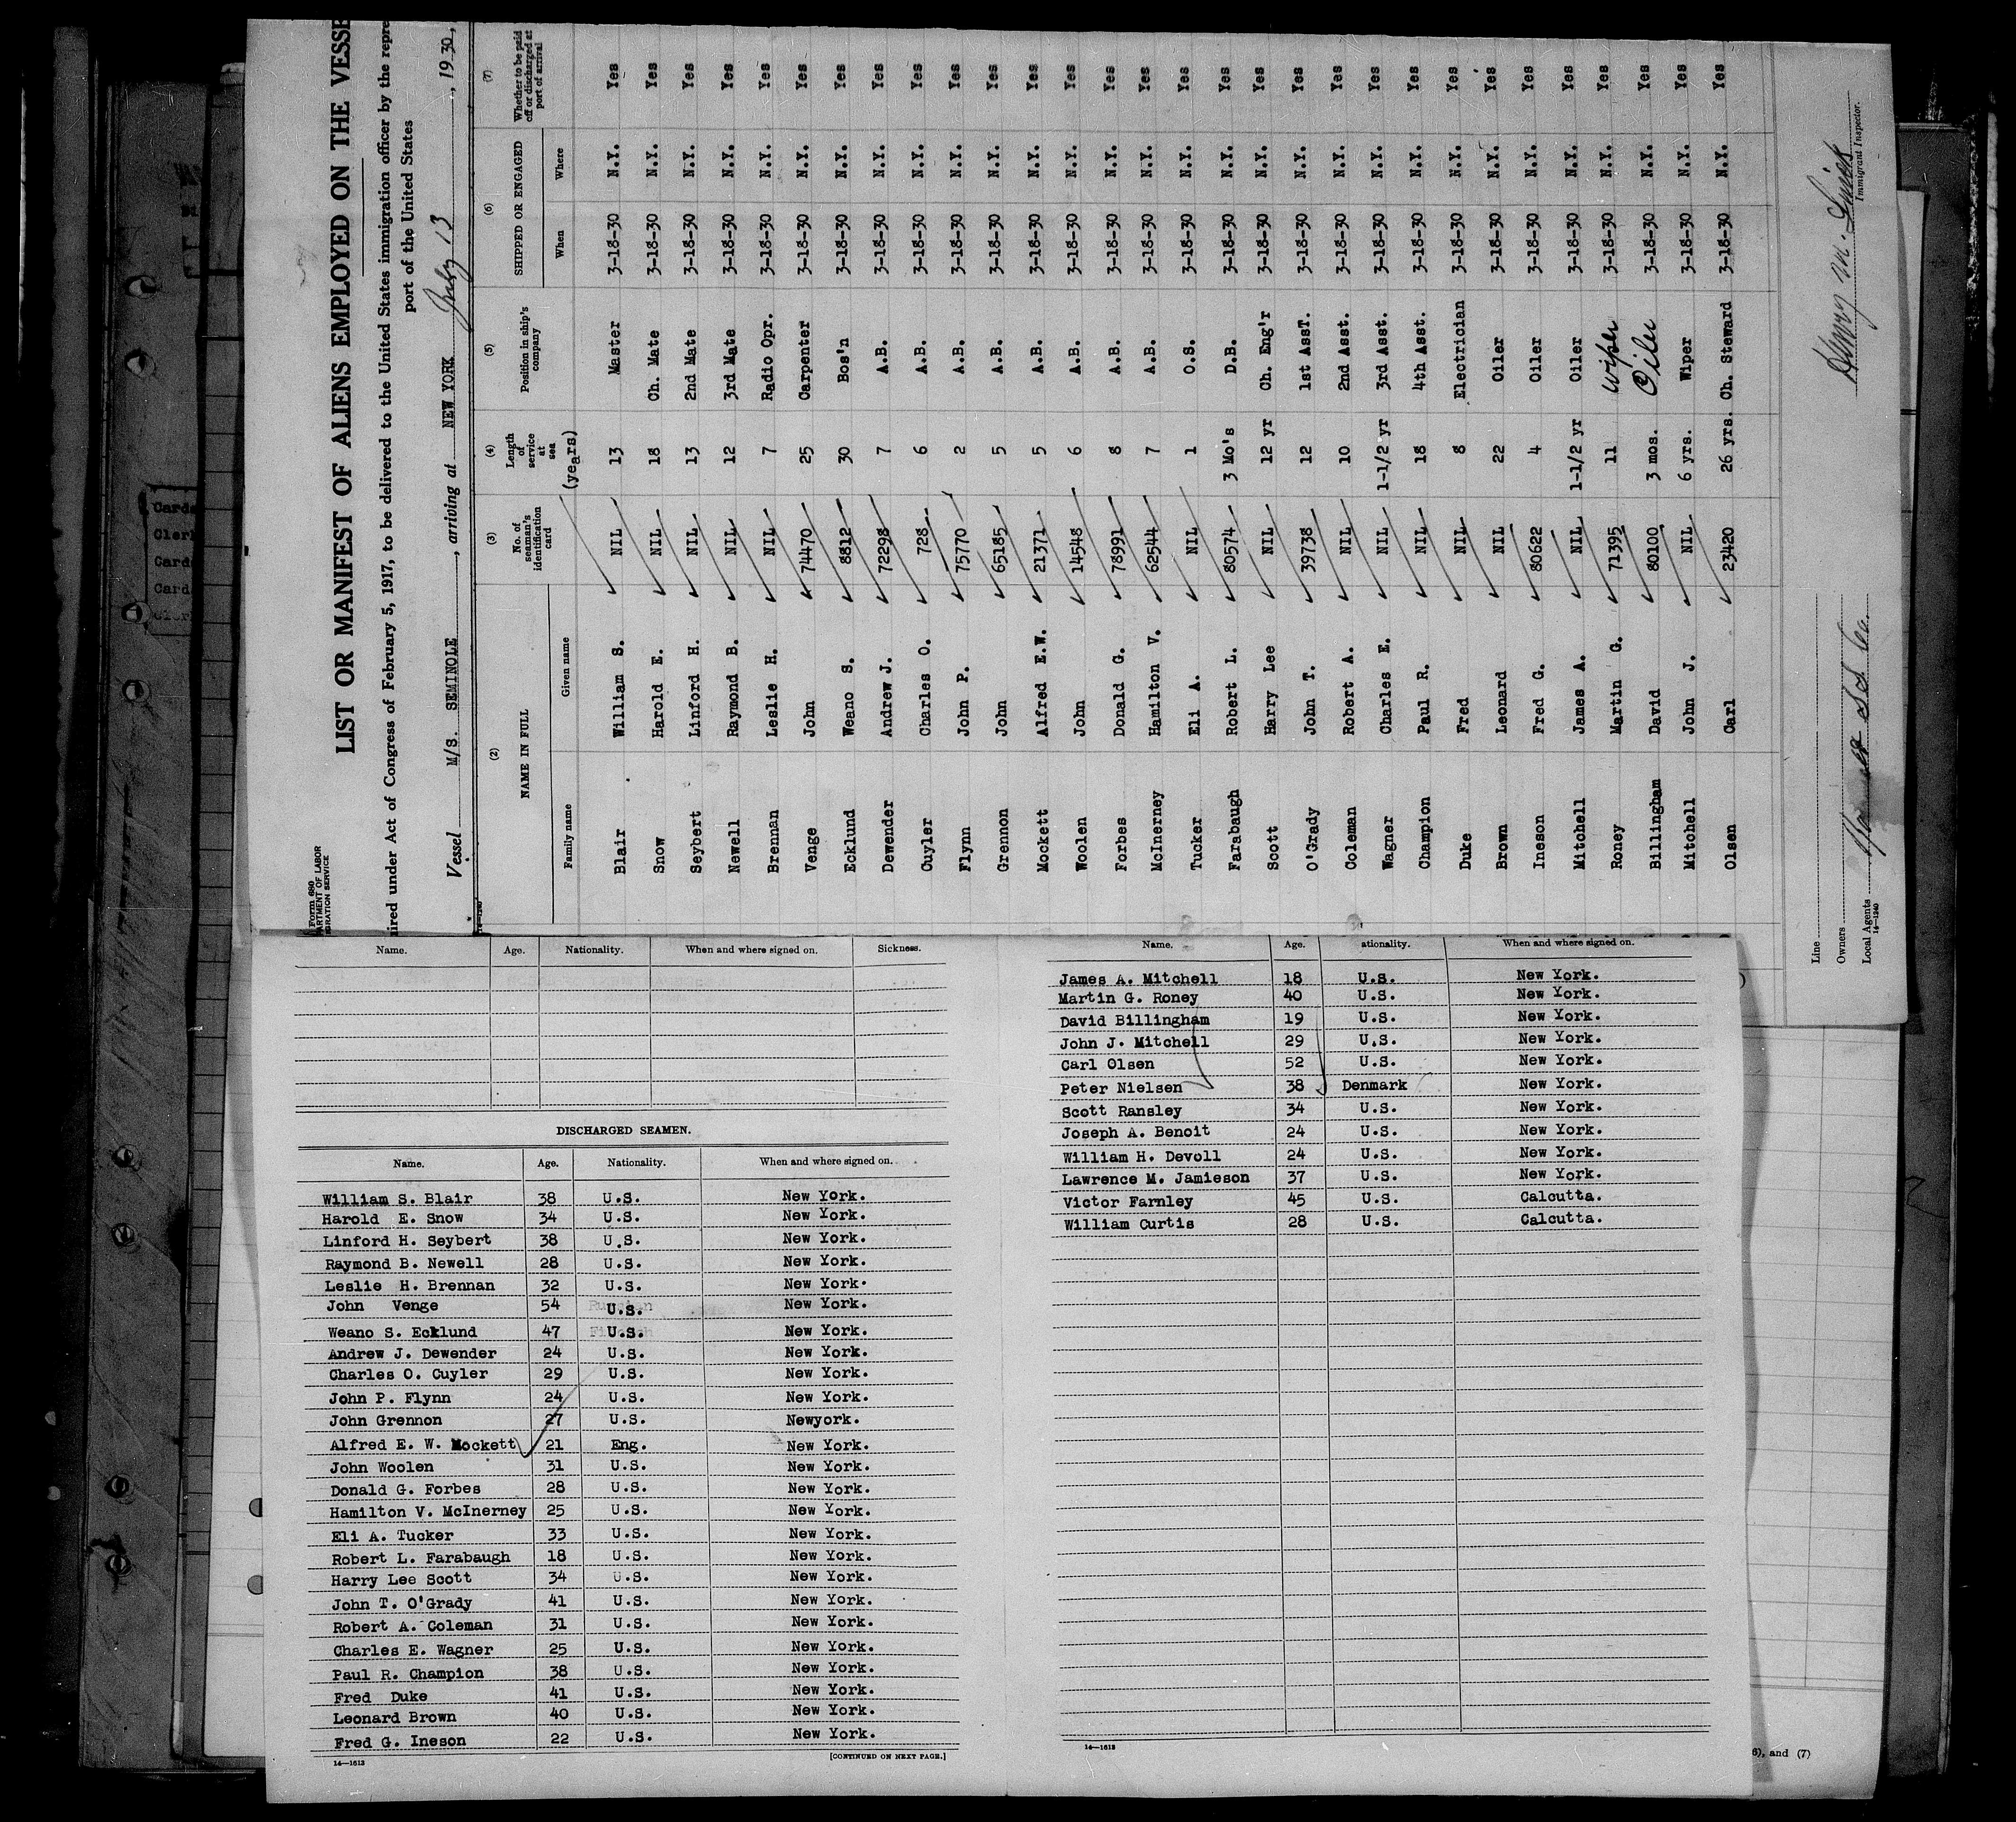 Form 680
LIST OR MANIFEST OF ALIENS EMPLOYED ON THE VESSE
uired under Act of Congress of February 5, 1917, to be delivered to the United States immigration officer by the repre
port of the United States
Vessel M/S. SEMINOLE, arriving at NEW YORK July 13, 1930,
(2) (3) (4) (5) (6) (7)
NAME IN FULL No. of seaman's identification card Length of service at sea Position in ship's company SHIPPED OR ENGAGED Whether to be paid off or discharged at port of arrival
Family name Given name (years) When Where
Blair William S. NIL 13 Master 3-18-30 N.Y. Yes
Snow Harold E. NIL 18 Ch. Mate 3-18-30 N.Y. Yes
Seybert Linford H. NIL 13 2nd Mate 3-18-30 N.Y. Yes
Newell Raymond B. NIL 12 3rd Mate 3-18-30 N.Y. Yes
Brennan Leslie H. NIL 7 Radio Opr. 3-18-30 N.Y. Yes
Venge John 74470 25 Carpenter 3-18-30 N.Y. Yes
Ecklund Weano S. 8812 30 Bos'n 3-18-30 N.Y. Yes
Dewender Andrew J. 72298 7 A.B. 3-18-30 N.Y. Yes
Cuyler Charles O. 728 6 A.B. 3-18-30 N.Y. Yes
Flynn John P. 75770 2 A.B. 3-18-30 N.Y. Yes
Grennon John 65185 5 A.B. 3-18-30 N.Y. Yes
Mockett Alfred E.W. 21371 5 A.B. 3-18-30 N.Y. Yes
Woolen John 14548 6 A.B. 3-18-30 N.Y. Yes
Forbes Donald G. 78991 8 A.B. 3-18-30 N.Y. Yes
McInerney Hamilton V. 62544 7 A.B. 3-18-30 N.Y. Yes
Tucker Eli A. NIL 1 O.S. 3-18-30 N.Y. Yes
Farabaugh Robert L. 80574 3 Mo's D.B. 3-18-30 N.Y. Yes
Scott Harry Lee NIL 12 yr Ch. Eng'r 3-18-30 N.Y. Yes
O'Grady John T. 39738 12 1st AssT. 3-18-30 N.Y. Yes
Coleman Robert A. NIL 10 2nd Asst. 3-18-30 N.Y. Yes
Wagner Charles E. NIL 1-1/2 yr 3rd Asst. 3-18-30 N.Y. Yes
Champion Paul R. NIL 18 4th Asst. 3-18-30 N.Y. Yes
Duke Fred NIL 8 Electrician 3-18-30 N.Y. Yes
Brown Leonard NIL 22 Oiler 3-18-30 N.Y. Yes
Ineson Fred G. 80622 4 Oiler 3-18-30 N.Y. Yes
Mitchell James A. NIL 1-1/2 yr Oiler 3-18-30 N.Y. Yes
Roney Martin G. 71395 11 Wiper 3-18-30 N.Y. Yes
Billingham David 80100 3 mos. Oiler 3-18-30 N.Y. Yes
Mitchell John J. NIL 6 yrs. Wiper 3-18-30 N.Y. Yes
Olsen Carl 23420 26 yrs. Ch. Steward 3-18-30 N.Y. Yes
Line
Owners
Local Agents
14—1240
Immigrant Inspector.
Cards
Cler
Card
Card
Cler
Name. Age. Nationality. When and where signed on. Sickness.
DISCHARGED SEAMEN.
Name. Age. Nationality. When and where signed on.
William S. Blair 38 U.S. New York.
Harold E. Snow 34 U.S. New York.
Linford H. Seybert 38 U.S. New York.
Raymond B. Newell 28 U.S. New York.
Leslie H. Brennan 32 U.S. New York.
John Venge 54 U.S. New York.
Weano S. Ecklund 47 U.S. New York.
Andrew J. Dewender 24 U.S. New York.
Charles O. Cuyler 29 U.S. New York.
John P. Flynn 24 U.S. New York.
John Grennon 27 U.S. Newyork.
Alfred E. W. Mockett 21 Eng. New York.
John Woolen 31 U.S. New York.
Donald G. Forbes 28 U.S. New York.
Hamilton V. McInerney 25 U.S. New York.
Eli A. Tucker 33 U.S. New York.
Robert L. Farabaugh 18 U.S. New York.
Harry Lee Scott 34 U.S. New York.
John T. O'Grady 41 U.S. New York.
Robert A. Coleman 31 U.S. New York.
Charles E. Wagner 25 U.S. New York.
Paul R. Champion 38 U.S. New York.
Fred Duke 41 U.S. New York.
Leonard Brown 40 U.S. New York.
Fred G. Ineson 22 U.S. New York.
14—1613 [CONTINUED ON NEXT PAGE.]
Name. Age. ationality. When and where signed on.
James A. Mitchell 18 U.S. New York.
Martin G. Roney 40 U.S. New York.
David Billingham 19 U.S. New York.
John J. Mitchell 29 U.S. New York.
Carl Olsen 52 U.S. New York.
Peter Nielsen 38 Denmark New York.
Scott Ransley 34 U.S. New York.
Joseph A. Benoit 24 U.S. New York.
William H. Devoll 24 U.S. New York.
Lawrence M. Jamieson 37 U.S. New York.
Victor Farnley 45 U.S. Calcutta.
William Curtis 28 U.S. Calcutta.
14—1613
6), and (7)